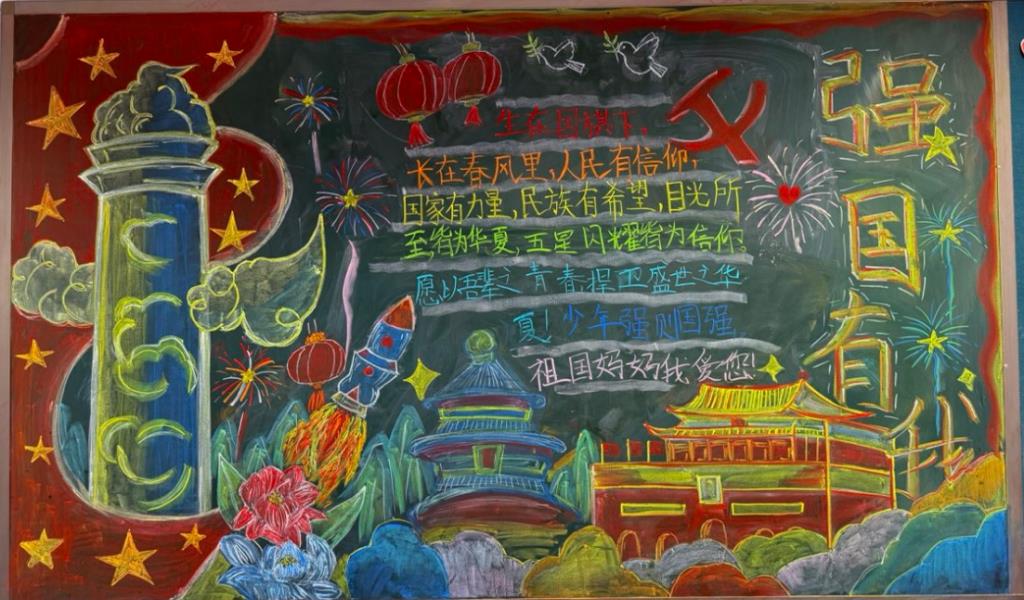 生在国旗下，
长在春风里，人民有信仰，
国家有力量，民族有希望，目光所
至皆为华夏，五星闪耀皆为信仰。
愿以吾辈之青春捍卫盛世之华
夏！少年强则国强，
祖国妈妈我爱您！
强国有我